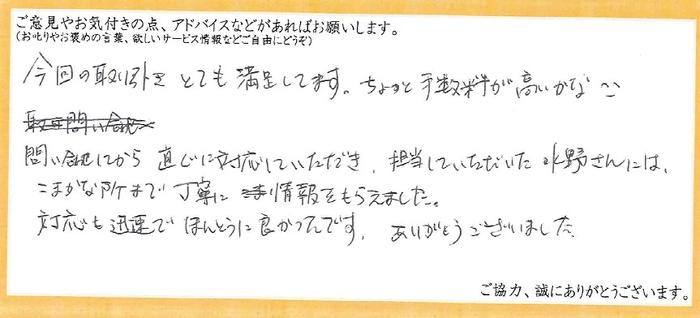 ご意見やお気付きの点、アドバイスなどがあればお願いします。
(お叱りやお褒めの言葉、欲しいサービス情報などご自由にどうぞ)
今回の取り引きとても満足してます。ちょっと手数料が高いかな
問い合せしてから直ぐに対応していただき、担当していただいた水野さんには、
こまかな所まで丁寧に情報をもらえました。
対応も迅速でほんとうに良かったです。ありがとうございました
ご協力、誠にありがとうございます。